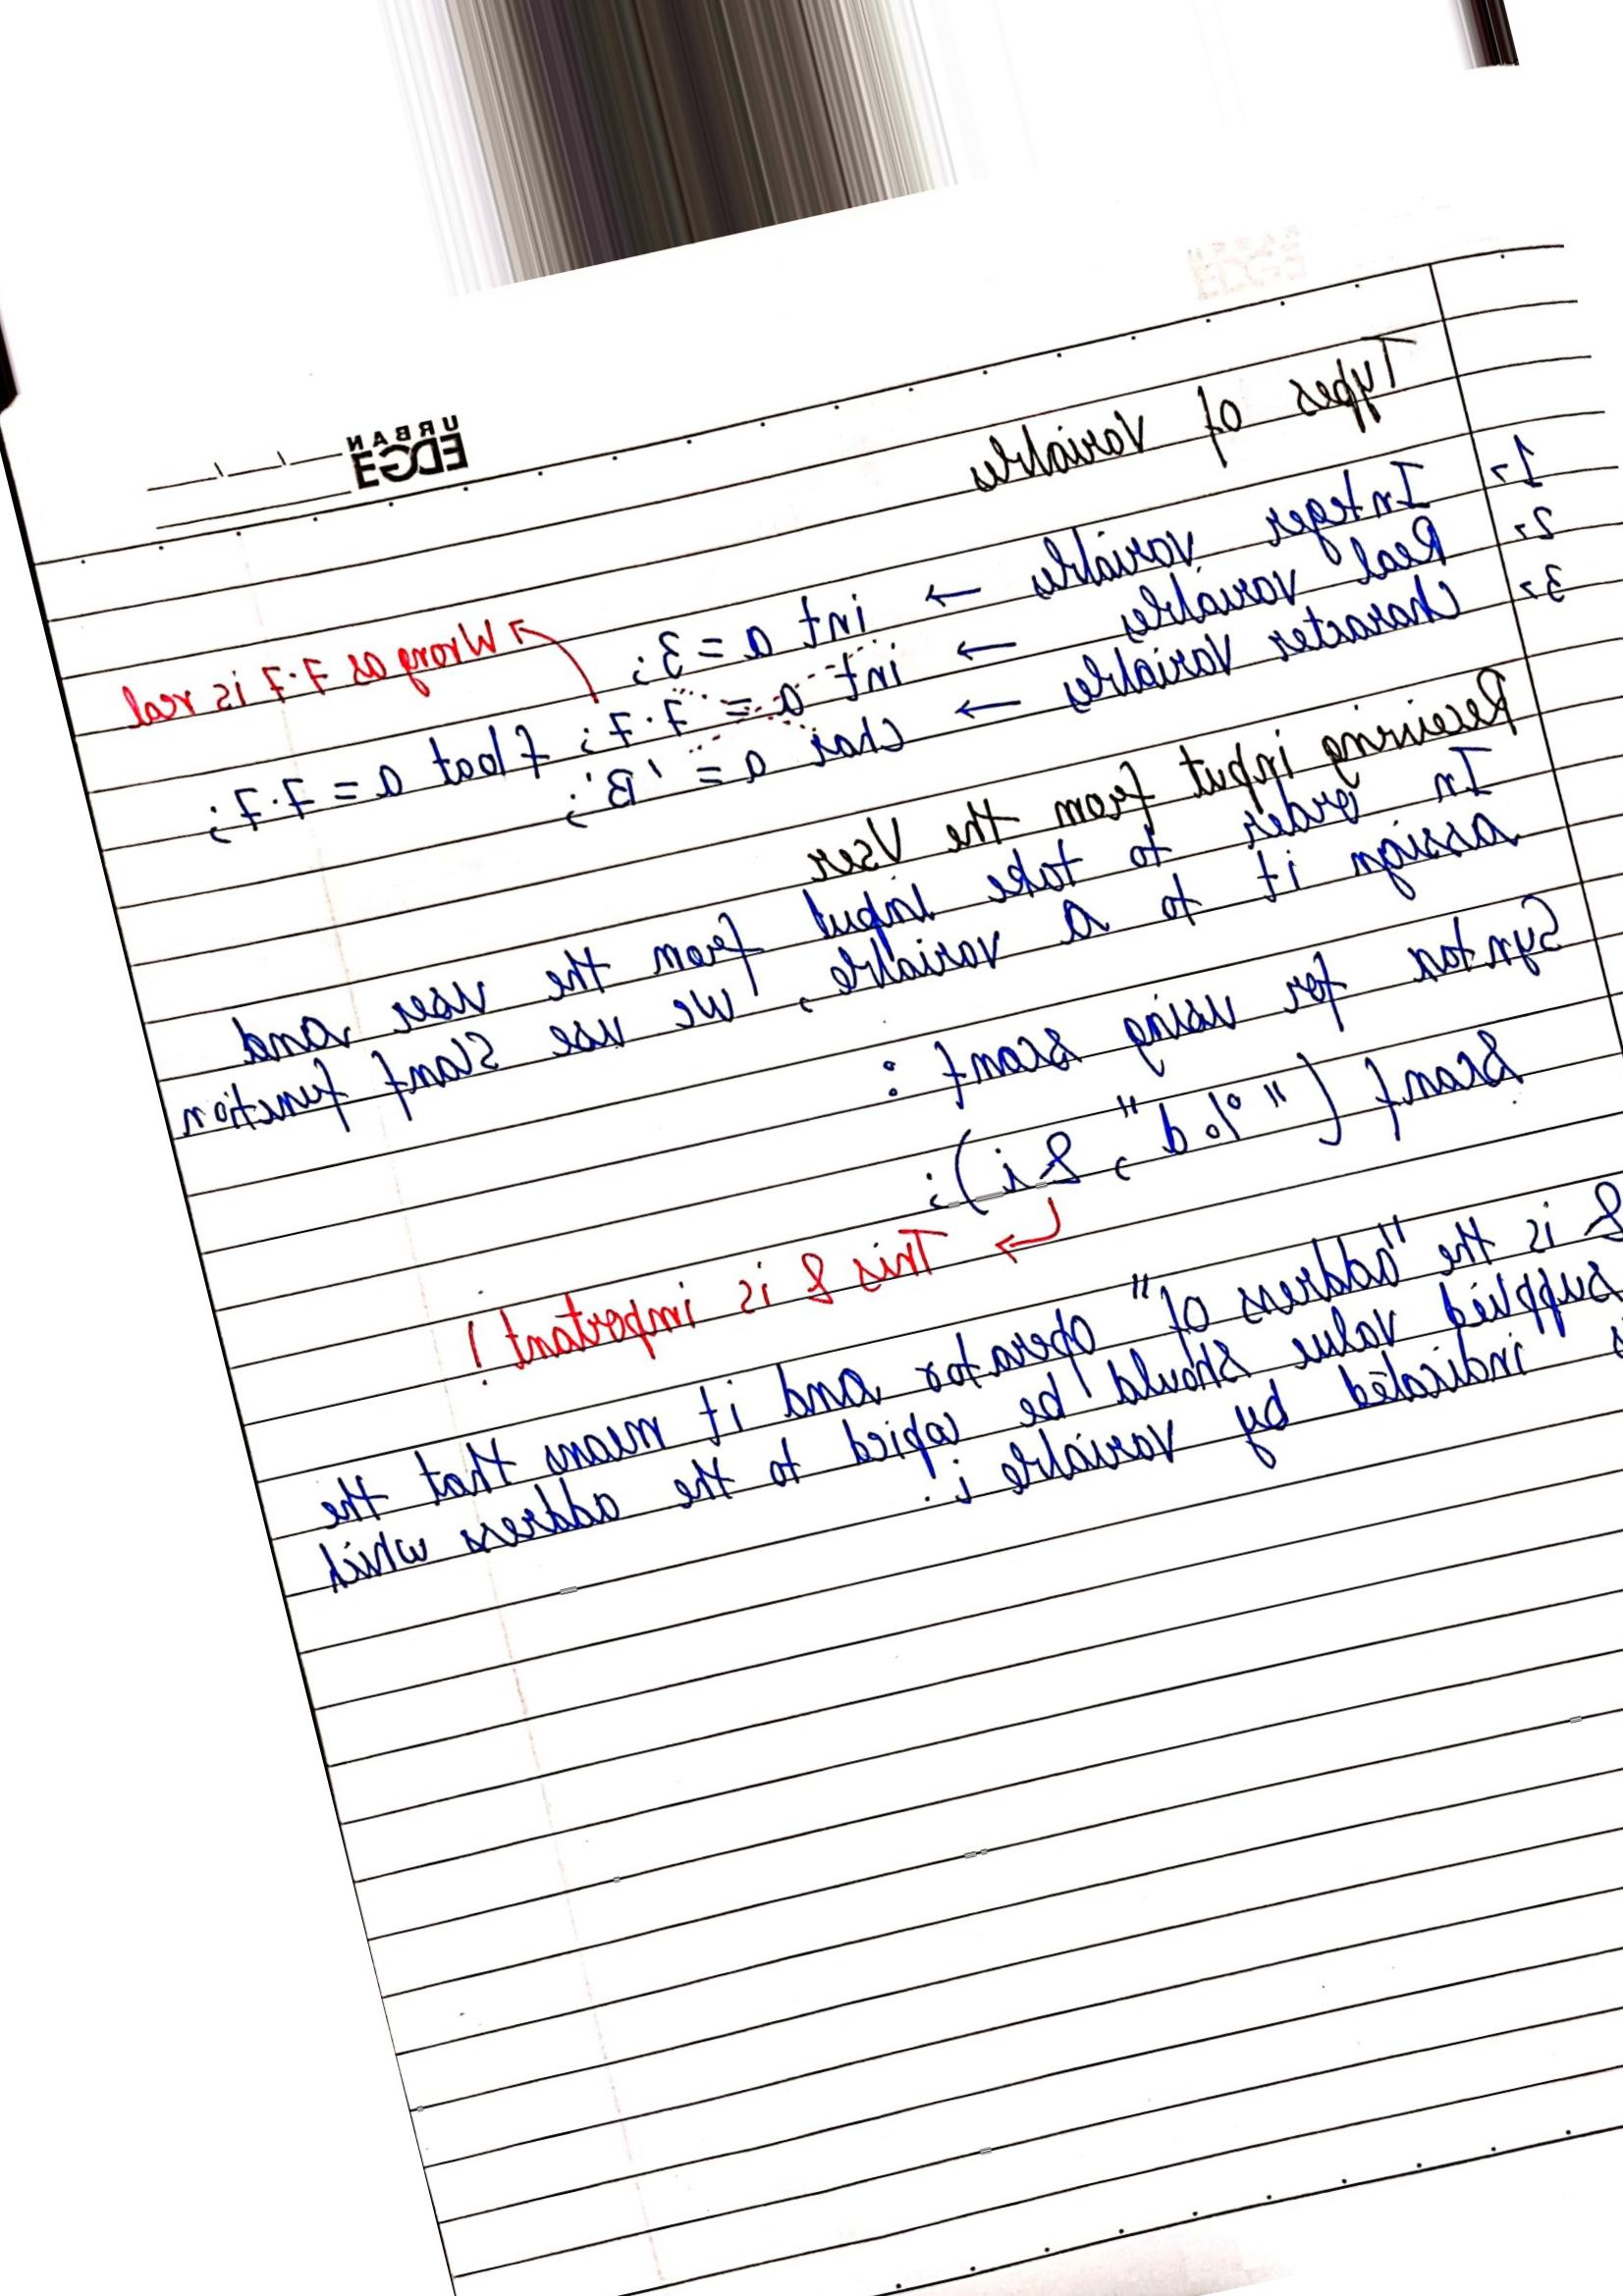 URBAN
EDGE
Types of Variables
1> Integer variables → int a = 3;
2> Real variables → int a = 7.7; float a = 7.7;
Wrong as 7.7 is real
3> Character Variables → char a = 'B';
Receiving input from the User
In order to take input from the user and
assign it to a variable, we use scanf function
Syntax for using scanf :
Scanf ("%d", &i);
This & is imporatant !
& is the "address of" operator and it means that the
supplied value should be copied to the address which
is indicated by variable i.